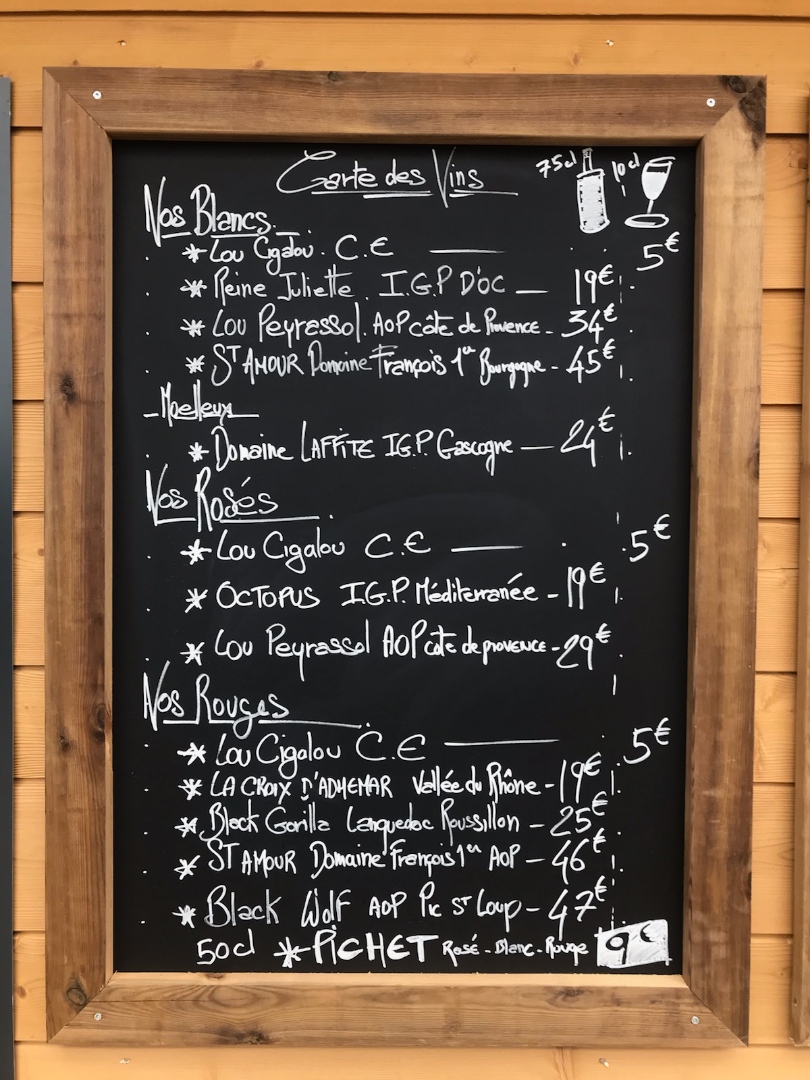 Carte des Vins 75cl 10cl
Nos Blancs
* Lou Cigalou. C.E — 5€
* Reine Juliette. I.G.P D'OC — 19€
* Lou Peyrassol. AOP côte de Provence - 34€
* ST AMOUR Domaine François 1er Bourgogne - 45€
- Moelleux
* Domaine LAFFITE I.G.P. Gascogne — 24€
Nos Rosés
* Lou Cigalou C.E — 5€
* OCTOPUS I.G.P. Méditerranée - 19€
* Lou Peyrassol AOP côte de provence - 29€
Nos Rouges
* Lou Cigalou C.E — 5€
* LA CROIX D'ADHEMAR Vallée du Rhône - 19€
* Black Gorilla Languedoc Roussillon - 25€
* ST AMOUR Domaine François 1er AOP - 46€
* Black Wolf AOP Pic ST Loup - 47€
50cl * PICHET Rosé - Blanc - Rouge 9€